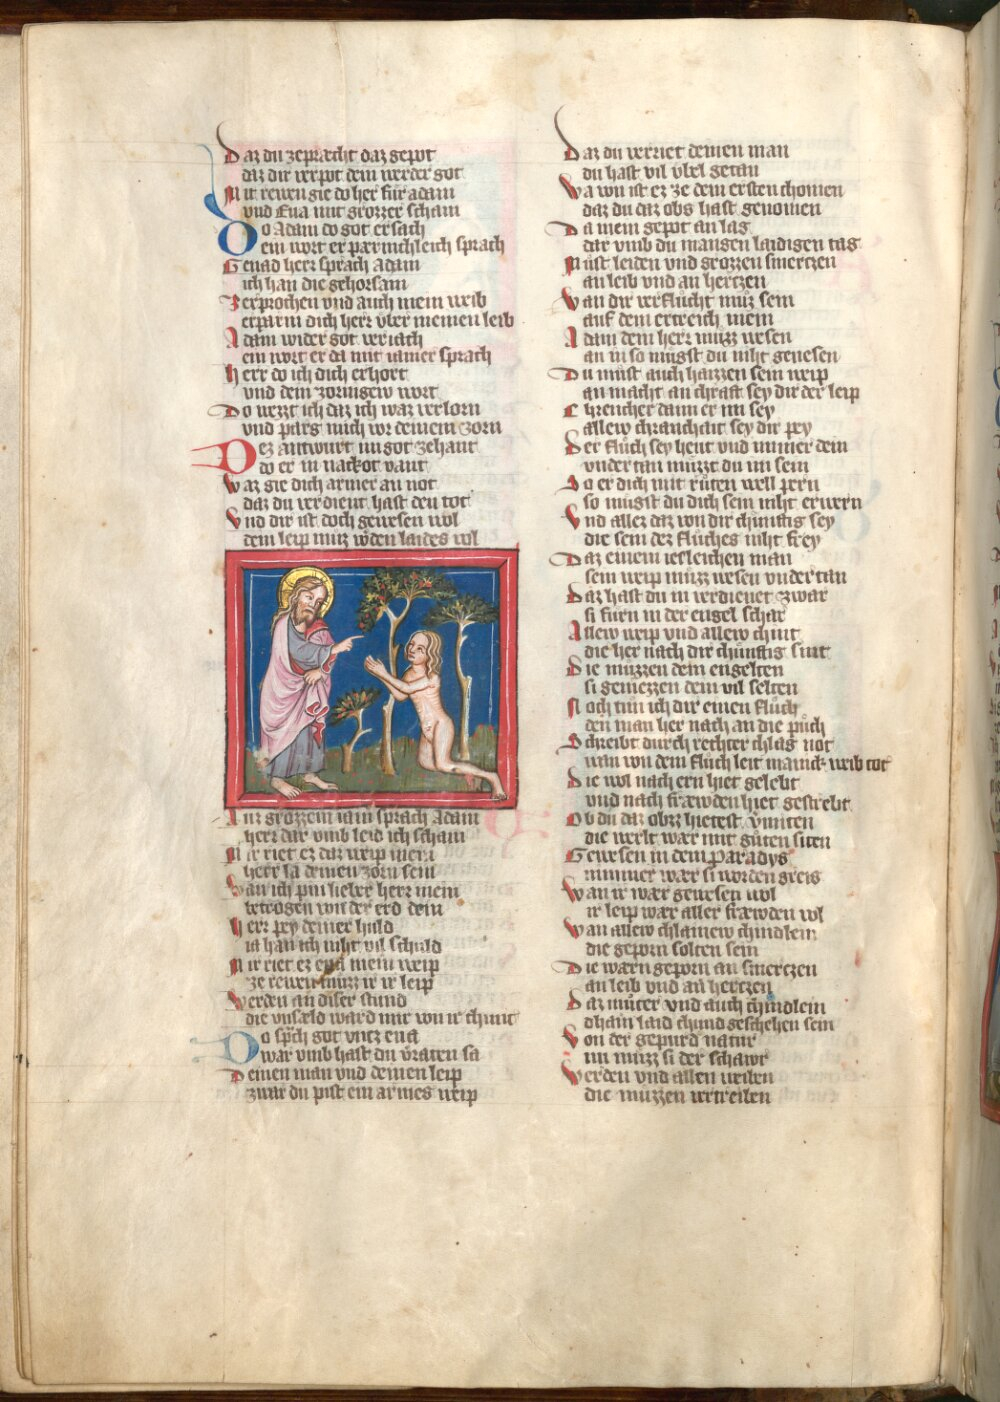 Daz du zepracht daz gepot
daz dir verpot dein werder got
Mit rewen gie do her für adam
vnd Eua mit grozzer scham
Do Adam do got ersach
ein wort er pærmchleich sprach
Genad herr sprach Adam
ich han die gehorsam
Zerprochen vnd auch mein weib
erparm dich herr vber meinen leib
Adam wider got veriach
ein wort er da mit iamer sprach
herr do ich dich erhort
vnd dein zornigew wort
Do west ich daz ich waz verlorn
vnd parg mich vor deinem zorn
Dez antwurt im got zehant
do er in nackot vant
Waz gie dich armer an not
daz du verdient hast den tot
Vnd dir ist doch gewesen wol
dein leip muz ẘden laides vol
In grozzem iam̄ sprach Adam
herr dar vmb leid ich scham
Mir riet ez daz weip mein
herr la deinen zorn sein
Wan ich pin lieber herr mein
betrogen von der erd dein
herr pey deiner huld
ia han ich niht vil schuld
Mir riet ez eua mein weip
ze rewen muzz ir ir leip
Werden an diser stund
die vnsæld ward mir von ir chunt
Do sp̄ch got vncz eua
war vmb hast du v̊raten sa
Deinen man vnd deinen leip
zwar du pist ein armes weip
Daz du verriet deinen man
du hast vil v̊bel getan
Wa von ist ez ze dem ersten chomen
daz du daz obs hast genomen
Da mein gepot an lag
dar vmb du mangen laidigen tag
Můst leiden vnd grozzen smerczen
an leib vnd an herczen
Wan dir verflůcht můz sein
auf dem ertreich mein
Adam dein herr můzz wesen
an in so mugst du niht genesen
Du můst auch haizzen sein weip
an macht an chraft sey dir der leip
Chrencher dann er im sey
allew chranchait sey dir pey
Der flůch sey hewt vnd immer dein
vnder tan můzzt du im sein
So er dich mit růten well pern
so mugst du dich sein niht erwern
Vnd allez daz von dir chůnftig sey
die sein dez flůches niht frey
Daz einem iesleichen man
sein weip můzz wesen vndertan
Daz hast du in verdienet zwar
si furn in der engel schar
Allew weip vnd allew chint
die her nach dir chůnftig sint
Die můzzen dem engelten
si geniezzen dem vil selten
Noch tůn ich dir einen flůch
den man her nach an die půch
Schreibt durch rechter chlag not
wan von dem flůch leit manick weib tot
Die wol nach ern hiet gelebt
vnd nach fræwden hiet gestrebt
Ob du daz obzz hietest v̊miten
die werlt wær mit gůten siten
Gewesen in dem Paradys
nimmer wær si worden greis
Wan ir wær gewesen wol
ir leip wær aller fræwden vol
Wan allew chlainew chindlein
die geporn solten sein
Die wærn geporn an smerczen
an leib vnd an herczen
Daz můter vnd auch chindlein
dhain laid chund geschehen sein
Von der gepurd natur
nu můzz si der schawr
Werden vnd allen weiben
die můzzen vertreiben